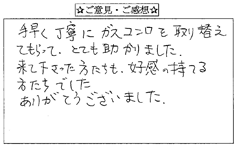 ☆ご意見・ご感想☆
手早く丁寧にガスコンロを取り替え
てもらって、とても助かりました。
来て下さった方たちも、好感の持てる
方たちでした。
ありがとうございました。